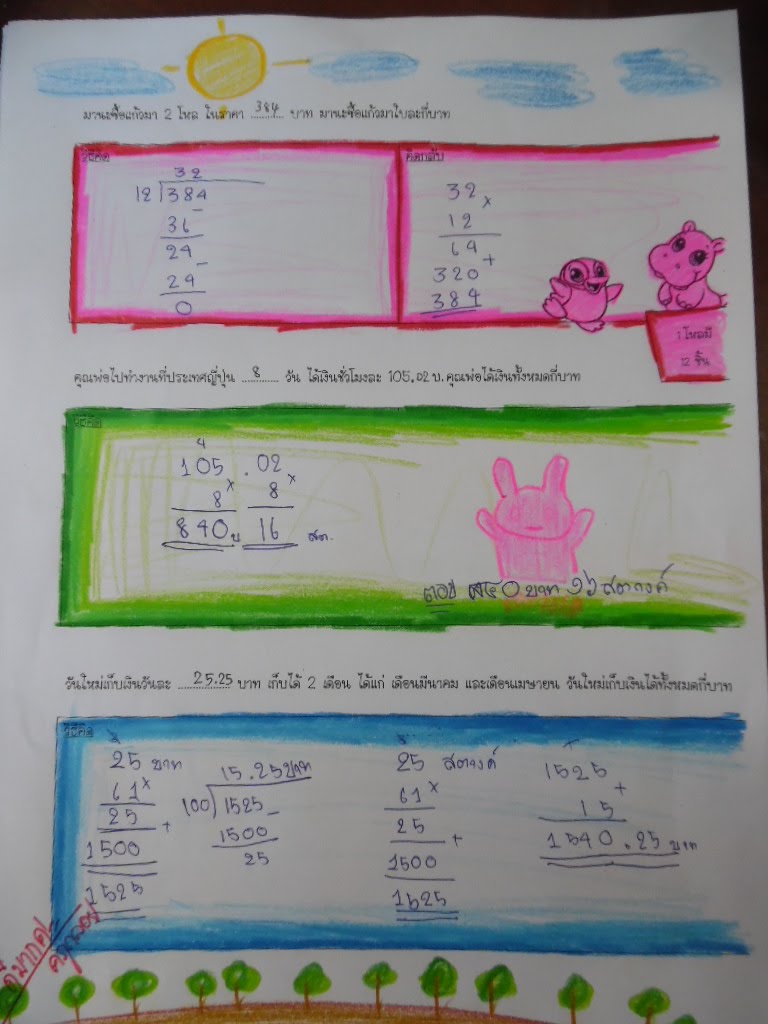 มานะซื้อแก้วมา 2 โหล ในราคา 384 บาท มานะซื้อแก้วมาใบละกี่บาท
วิธีคิด
32
12 384
36 -
24
24 -
0
คิดกลับ
32
12 ×
64
320 +
384
1 โหลมี
12 ชิ้น
คุณพ่อไปทำงานที่ประเทศญี่ปุ่น 8 วัน ได้เงินชั่วโมงละ 105.02 บ. คุณพ่อได้เงินทั้งหมดกี่บาท
วิธีคิด
4
105 . 02
8 × 8 ×
840 บ 16 สต.
ตอบ ๘๔๐ บาท ๑๖ สตางค์
วันใหม่เก็บเงินวันละ 25.25 บาท เก็บได้ 2 เดือน ได้แก่ เดือนมีนาคม และเดือนเมษายน วันใหม่เก็บเงินได้ทั้งหมดกี่บาท
วิธีคิด
25 บาท
61 ×
25 +
1500
1525
15.25 บาท
100 1525 -
1500
25
25 สตางค์
61 ×
25 +
1500
1525
1525 +
15
1540.25 บาท
ดีมากค่ะ